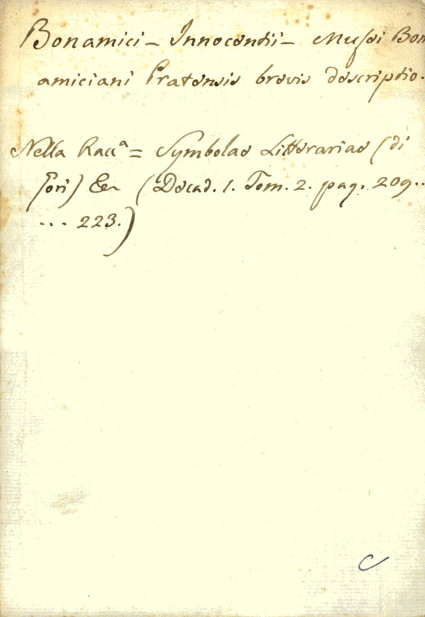 Bonamici - Innocentii - Musei Bon
amiciani Pratensis brevis descriptio.
Nella Racc.ª = Symbolae Litterariae (di
Gori) &c (Decad. 1. Tom. 2. pag. 209..
... 223.)
C